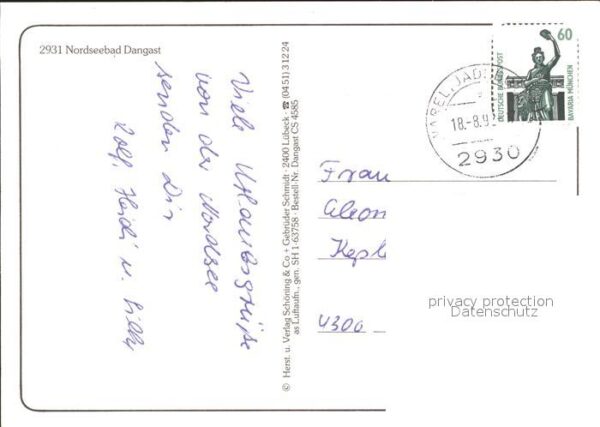 2931 Nordseebad Dangast
Viele Urlaubsgrüße
von der Nordsee
senden Dir
Rolf, Heidi u.
© Herst. u. Verlag Schöning & Co + Gebrüder Schmidt · 2400 Lübeck · ☎ (04 51) 3 12 24
als Luftaufn., gen. SH 1-63758 · Bestell-Nr. Dangast CS 4585
60
DEUTSCHE BUNDESPOST
BAVARIA MÜNCHEN
VAREL, JAD
18.-8.9
2930
Frau
Kepl
4300
privacy protection
Datenschutz